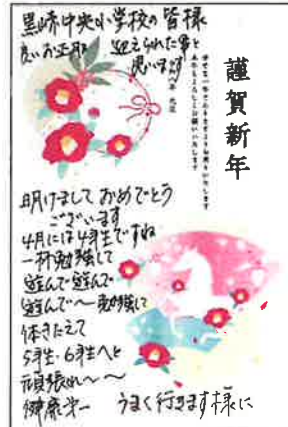 黒崎中央小学校の皆様
良いお正月 迎えられた事と
思います
謹賀新年
本年もよろしくお願いいたします
元旦
明けまして おめでとう
ございます
4月には4年生ですね
一杯勉強して
遊んで遊んで
遊んで〜勉強して
体きたえて
5年生・6年生へと
頑張れ〜〜
健康第一 うまく行きます様に